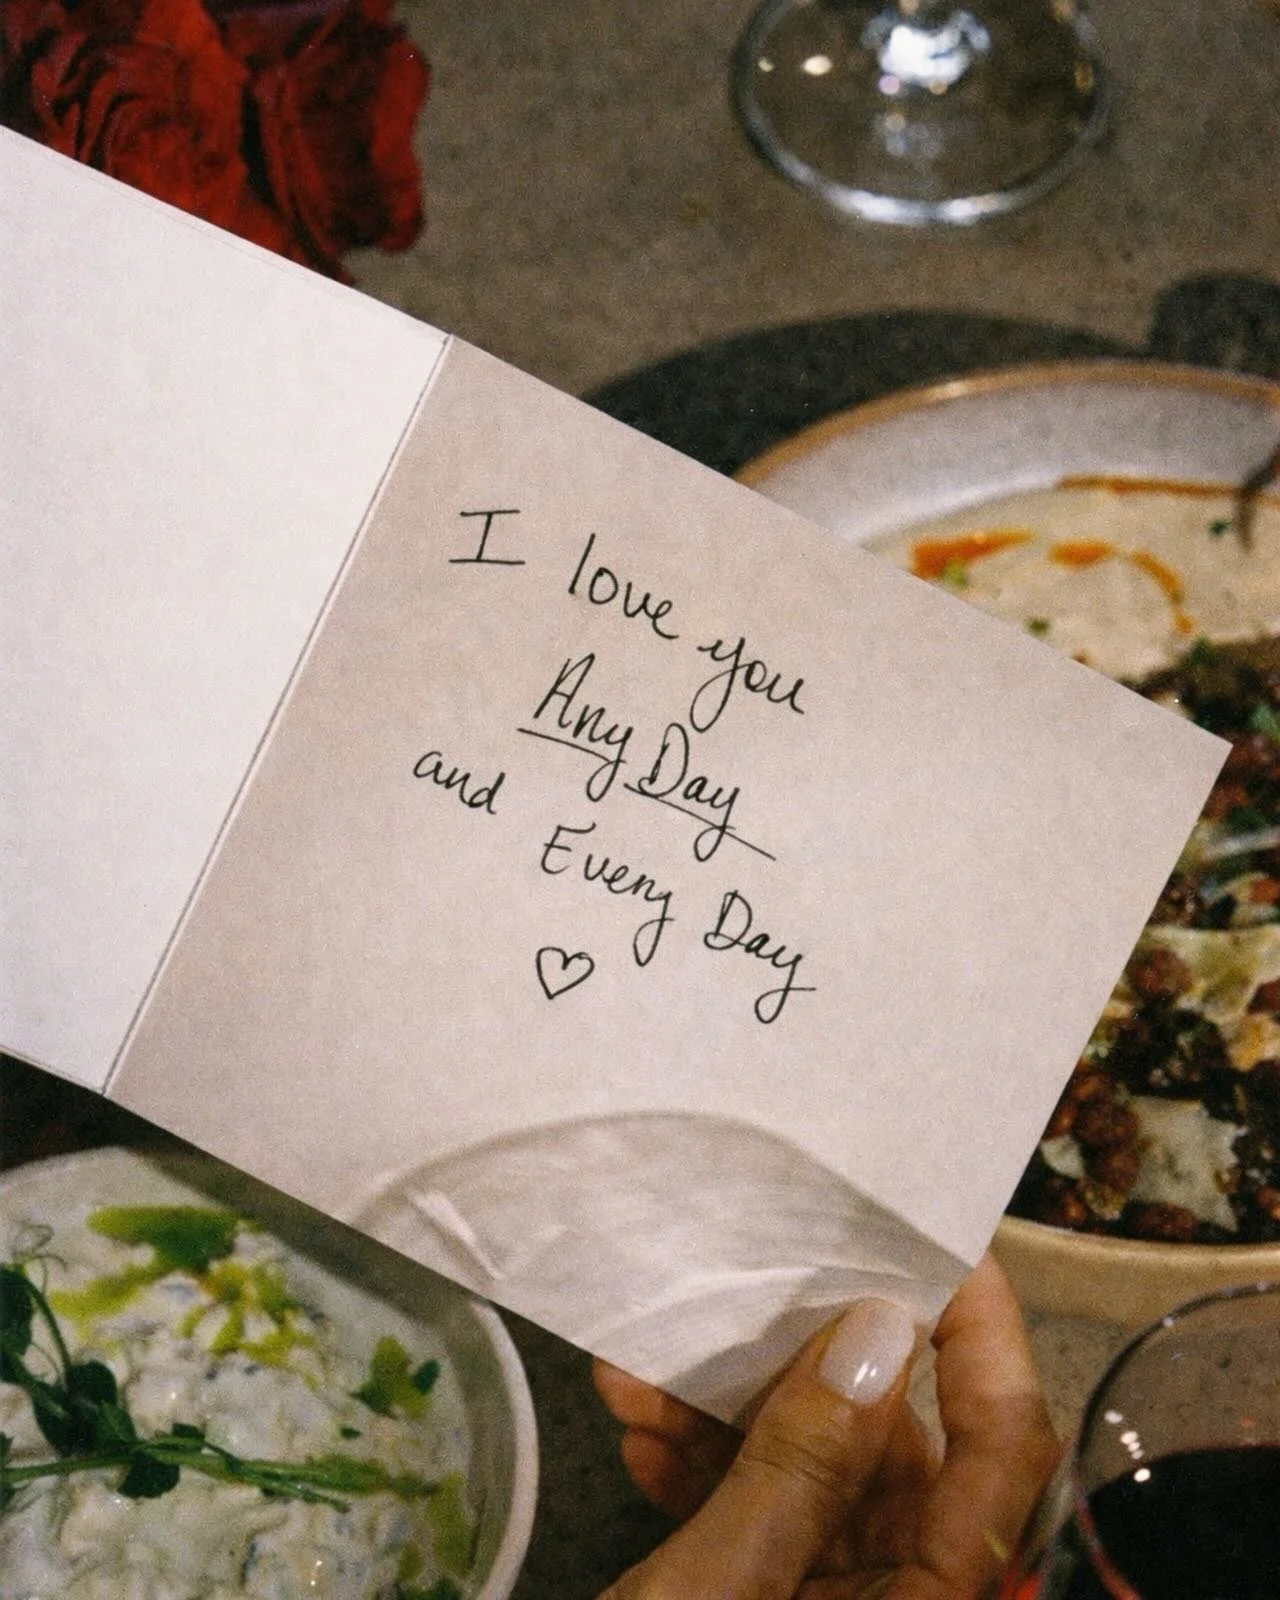 I love you
Any Day
and Every Day
♡